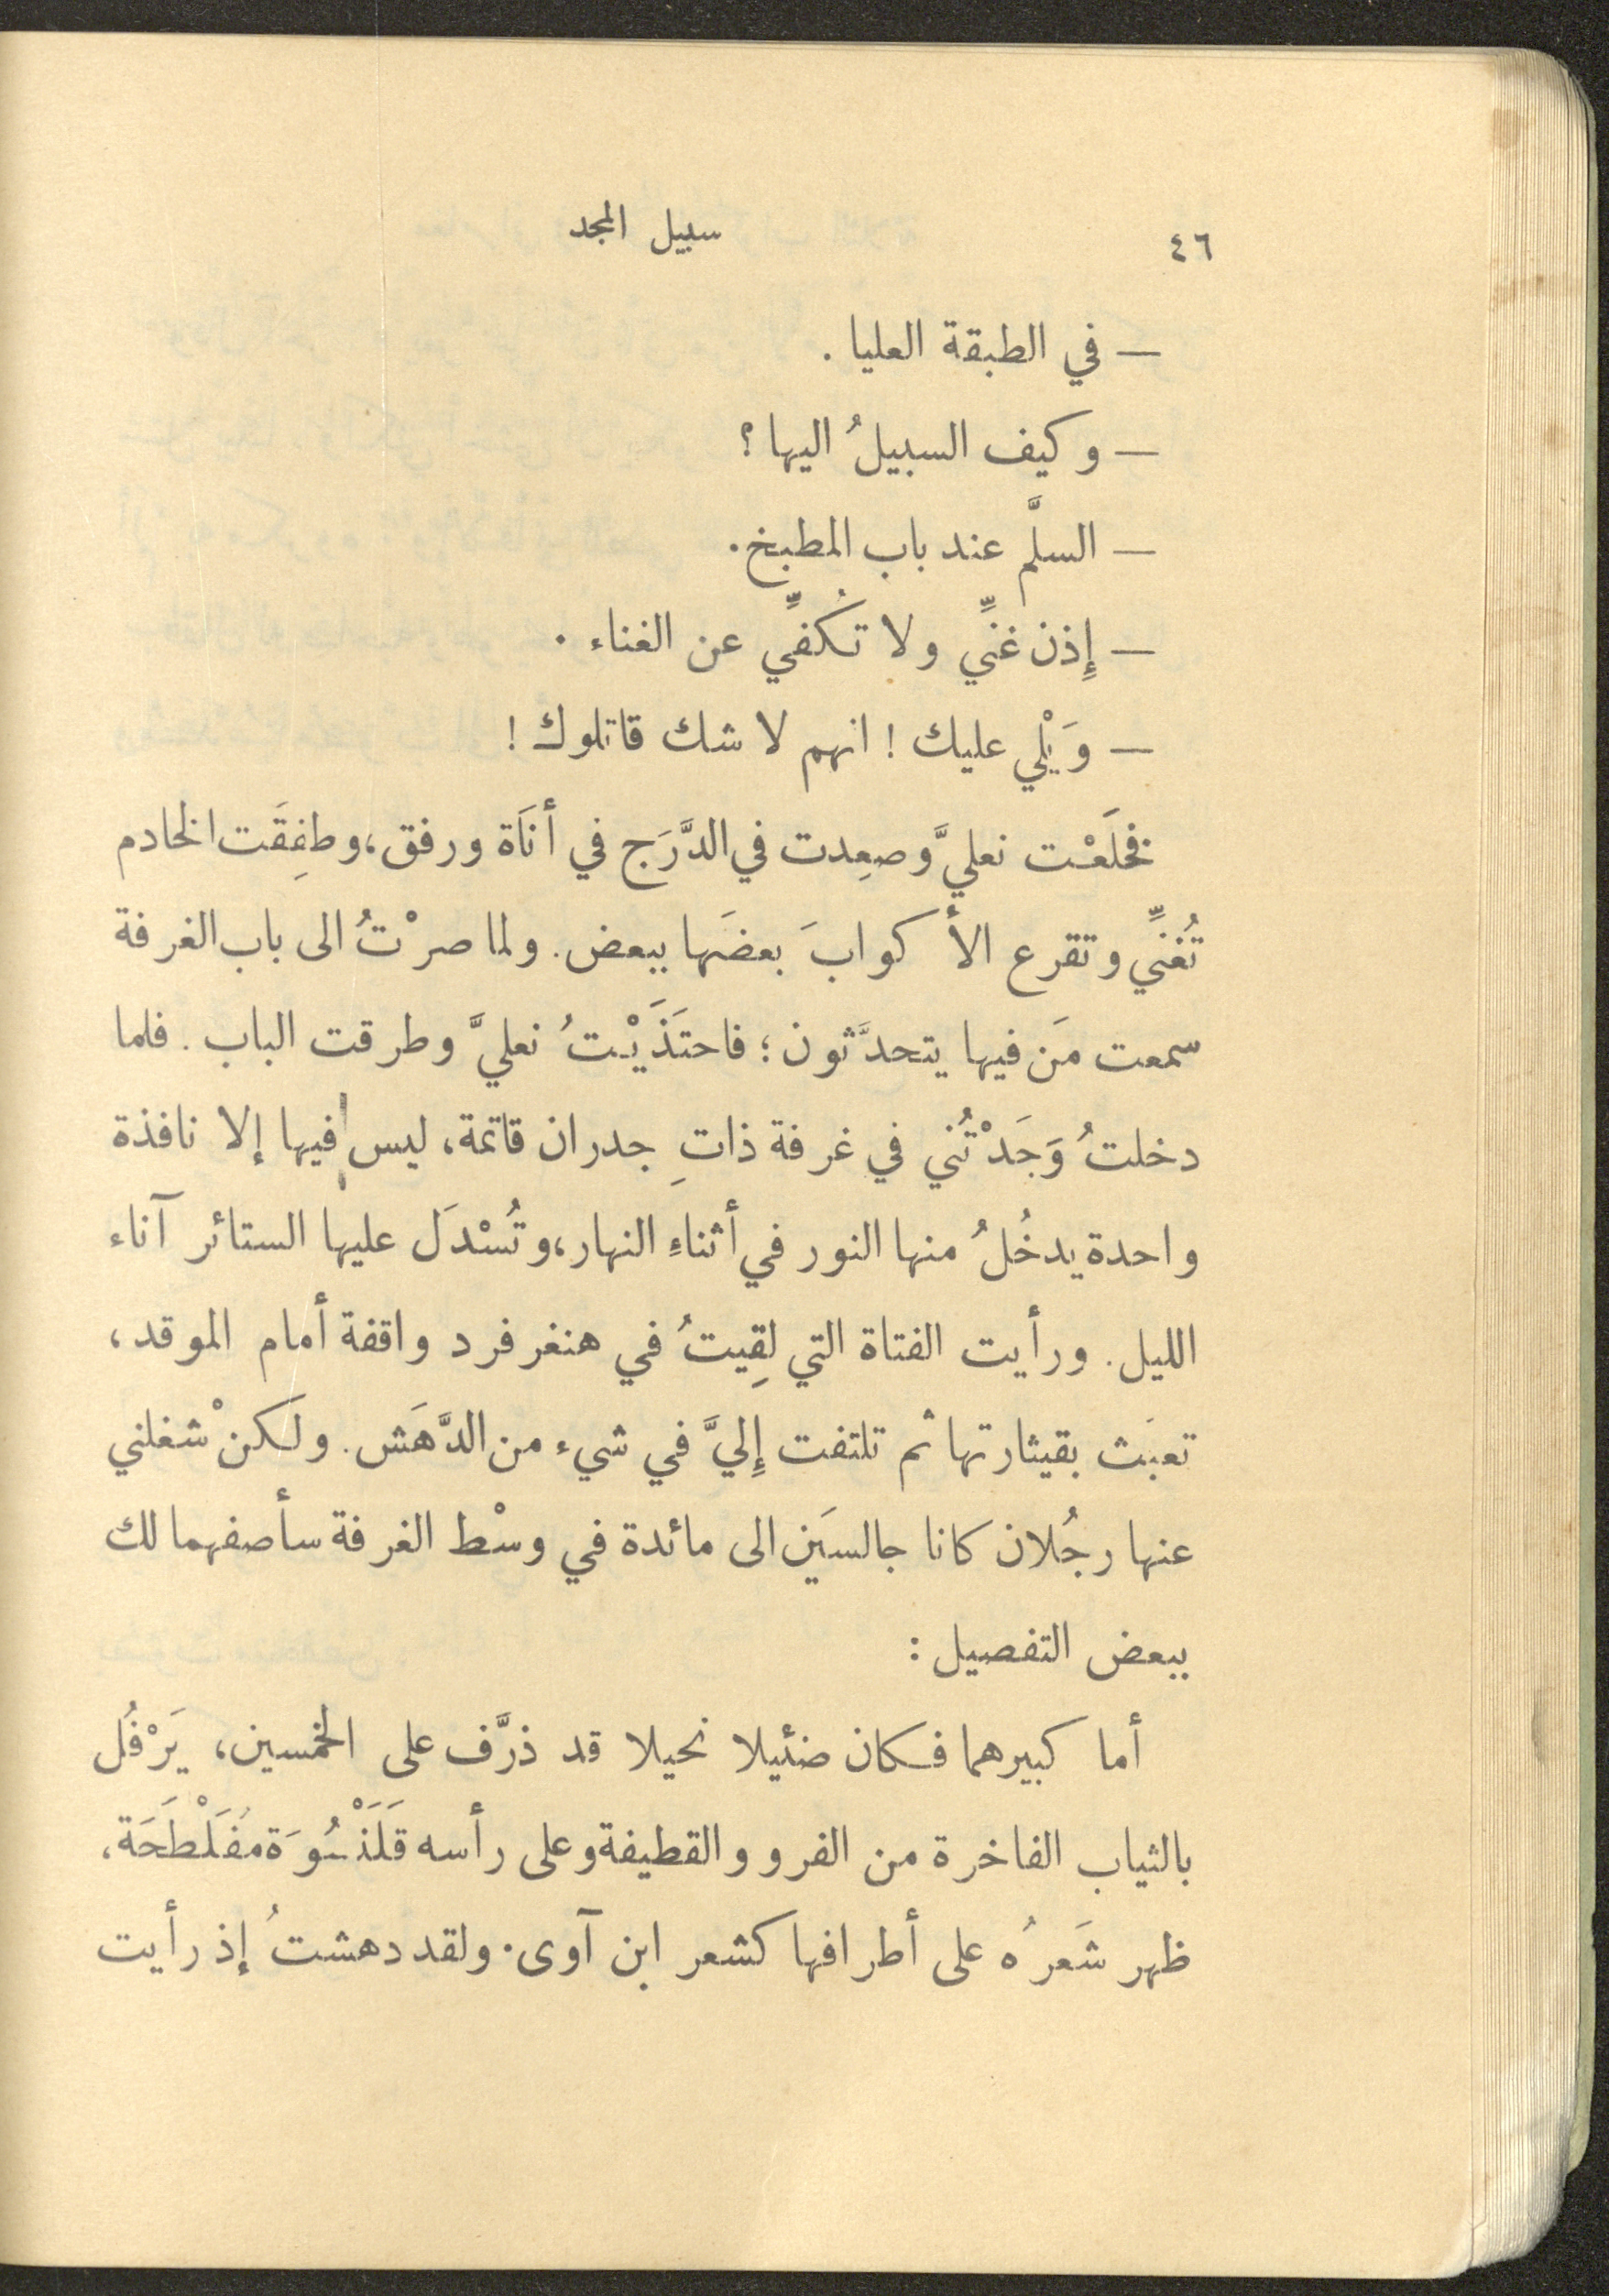 ٤٦ سبيل المجد
— في الطبقة العليا .
— وكيف السبيلُ اليها ؟
— السلَّم عند باب المطبخ.
— إِذن غنِّي ولا تكُفِّي عن الغناء .
— وَيْلي عليك ! انهم لا شك قاتلوك !
فخلَعْت نعليَّ وصعِدت في الدَّرَج في أنَاة ورفق، وطفِقَت الخادم
تُغنِّي وتقرع الأكوابَ بعضَها ببعض. ولما صرْتُ الى باب الغرفة
سمعت مَن فيها يتحدَّثون ؛ فاحتَذَيْتُ نعليَّ وطرقت الباب . فلما
دخلتُ وَجَدْتُني في غرفة ذاتِ جدران قاتمة، ليس فيها إلا نافذة
واحدة يدخُلُ منها النور في أثناءِ النهار، وتُسْدَل عليها الستائر آناء
الليل. ورأيت الفتاة التي لِقيتُ في هنغرفرد واقفة أمام الموقد،
تعبَث بقيثارتها ثم تلتفت إِليَّ في شيء من الدَّهَش. ولكنْ شغلني
عنها رجُلان كانا جالسَين الى مائدة في وسْط الغرفة سأصفهما لك
ببعض التفصيل :
أما كبيرهما فكان ضئيلا نحيلا قد ذرَّف على الخمسين، يَرْفُل
بالثياب الفاخرة من الفرو والقطيفة وعلى رأسه قَلَنْسُوَة مُفَلْطَحَة،
ظهر شَعرُه على أطرافها كشعر ابن آوى. ولقد دهشتُ إذ رأيت